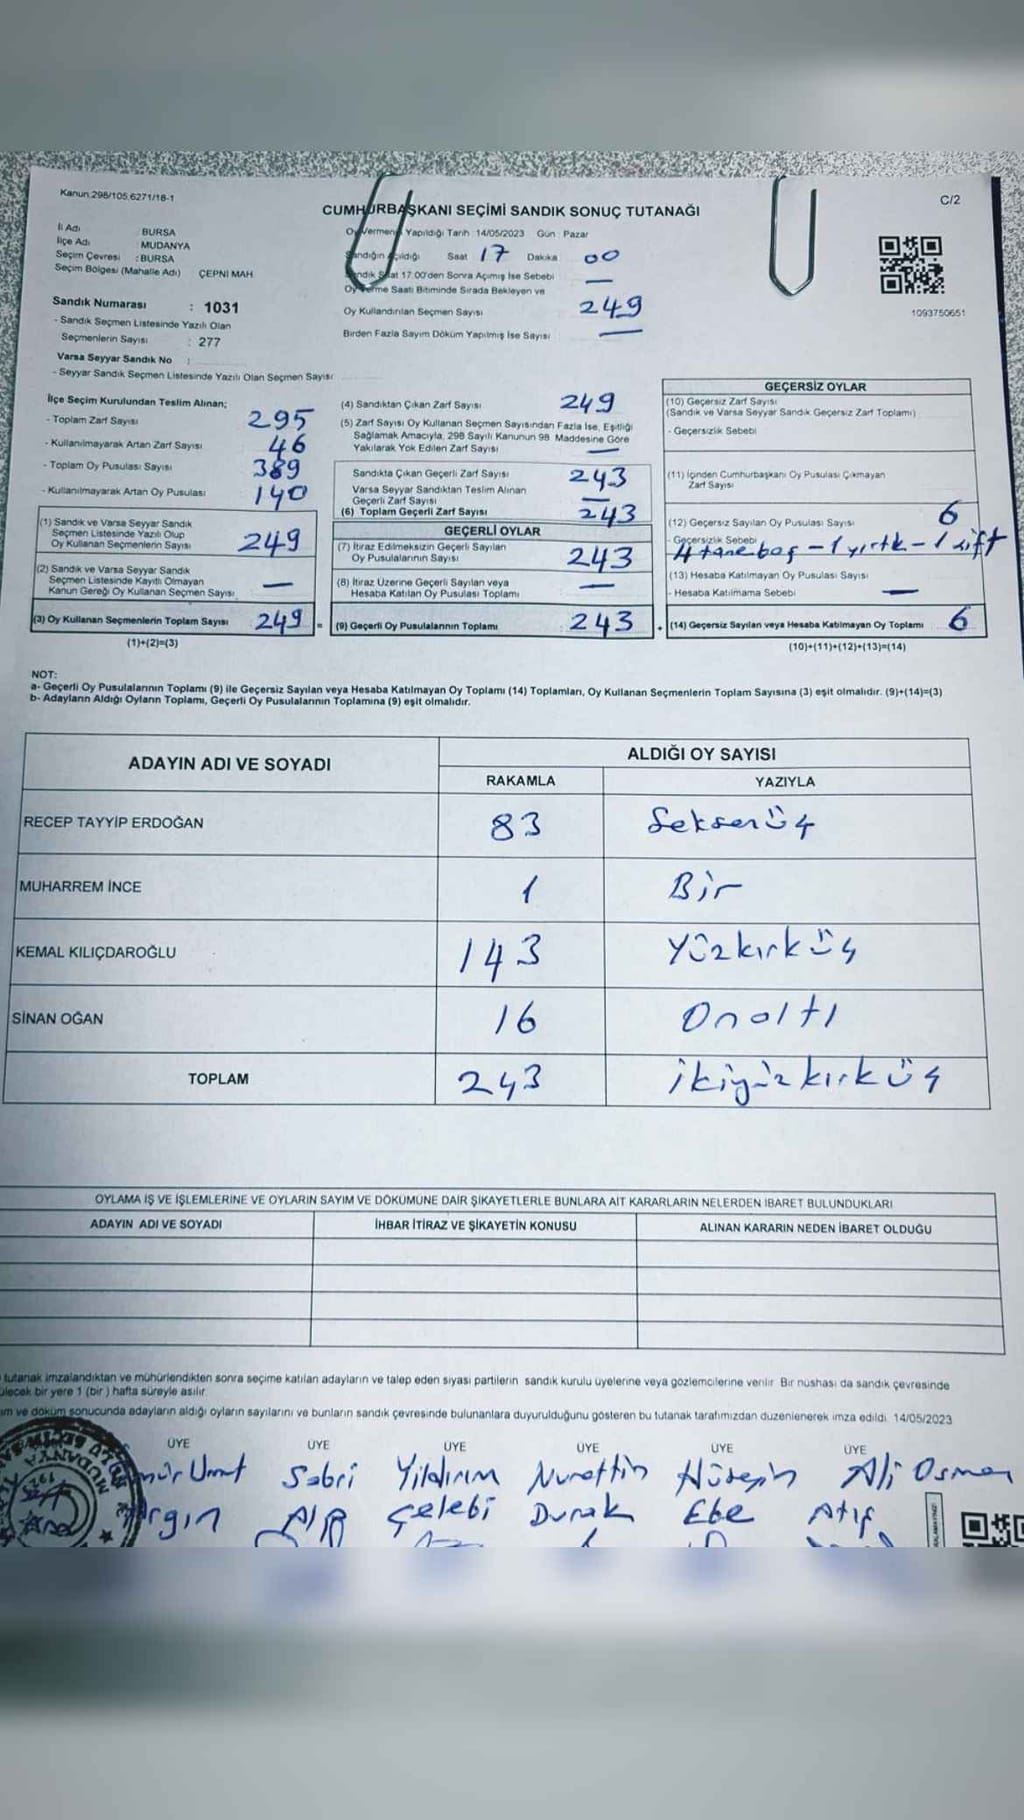 Kanun:298/105,6271/18-1
C/2
CUMHURBAŞKANI SEÇİMİ SANDIK SONUÇ TUTANAĞI
İl Adı : BURSA
İlçe Adı : MUDANYA
Seçim Çevresi : BURSA
Seçim Bölgesi (Mahalle Adı) ÇEPNİ MAH
Sandık Numarası : 1031
- Sandık Seçmen Listesinde Yazılı Olan
Seçmenlerin Sayısı : 277
Varsa Seyyar Sandık No :
- Seyyar Sandık Seçmen Listesinde Yazılı Olan Seçmen Sayısı
Oy Vermenin Yapıldığı Tarih :14/05/2023 Gün : Pazar
Sandığın Açıldığı Saat 17 Dakika 00
Sandık Saat 17.00'den Sonra Açımış İse Sebebi —
Oy Verme Saati Bitiminde Sırada Bekleyen ve
Oy Kullandırılan Seçmen Sayısı 249
Birden Fazla Sayım Döküm Yapılmış İse Sayısı —
1093750651
İlçe Seçim Kurulundan Teslim Alınan;
- Toplam Zarf Sayısı 295
- Kullanılmayarak Artan Zarf Sayısı 46
- Toplam Oy Pusulası Sayısı 389
- Kullanılmayarak Artan Oy Pusulası 140
(1) Sandık ve Varsa Seyyar Sandık
Seçmen Listesinde Yazılı Olup
Oy Kullanan Seçmenlerin Sayısı 249
(2) Sandık ve Varsa Seyyar Sandık
Seçmen Listesinde Kayıtlı Olmayan
Kanun Gereği Oy Kullanan Seçmen Sayısı —
(3) Oy Kullanan Seçmenlerin Toplam Sayısı 249
(1)+(2)=(3)
(4) Sandıktan Çıkan Zarf Sayısı 249
(5) Zarf Sayısı Oy Kullanan Seçmen Sayısından Fazla İse, Eşitliği
Sağlamak Amacıyla, 298 Sayılı Kanunun 98 Maddesine Göre
Yakılarak Yok Edilen Zarf Sayısı —
Sandıkta Çıkan Geçerli Zarf Sayısı 243
Varsa Seyyar Sandıktan Teslim Alınan
Geçerli Zarf Sayısı —
(6) Toplam Geçerli Zarf Sayısı 243
GEÇERLİ OYLAR
(7) İtiraz Edilmeksizin Geçerli Sayılan
Oy Pusulalarının Sayısı 243
(8) İtiraz Üzerine Geçerli Sayılan veya
Hesaba Katılan Oy Pusulası Toplamı —
= (9) Geçerli Oy Pusulalarının Toplamı 243
GEÇERSİZ OYLAR
(10) Geçersiz Zarf Sayısı
(Sandık ve Varsa Seyyar Sandık Geçersiz Zarf Toplamı)
- Geçersizlik Sebebi
(11) İçinden Cumhurbaşkanı Oy Pusulası Çıkmayan
Zarf Sayısı
(12) Geçersiz Sayılan Oy Pusulası Sayısı 6
- Geçersizlik Sebebi
4 tane boş - 1 yırtık - 1 çift
(13) Hesaba Katılmayan Oy Pusulası Sayısı
- Hesaba Katılmama Sebebi —
+ (14) Geçersiz Sayılan veya Hesaba Katılmayan Oy Toplamı 6
(10)+(11)+(12)+(13)=(14)
NOT:
a- Geçerli Oy Pusulalarının Toplamı (9) ile Geçersiz Sayılan veya Hesaba Katılmayan Oy Toplamı (14) Toplamları, Oy Kullanan Seçmenlerin Toplam Sayısına (3) eşit olmalıdır. (9)+(14)=(3)
b- Adayların Aldığı Oyların Toplamı, Geçerli Oy Pusulalarının Toplamına (9) eşit olmalıdır.
ADAYIN ADI VE SOYADI
ALDIĞI OY SAYISI
RAKAMLA YAZIYLA
RECEP TAYYİP ERDOĞAN 83 Seksenüç
MUHARREM İNCE 1 Bir
KEMAL KILIÇDAROĞLU 143 Yüzkırküç
SİNAN OĞAN 16 Onaltı
TOPLAM 243 ikiyüzkırküç
OYLAMA İŞ VE İŞLEMLERİNE VE OYLARIN SAYIM VE DÖKÜMÜNE DAİR ŞİKAYETLERLE BUNLARA AİT KARARLARIN NELERDEN İBARET BULUNDUKLARI
ADAYIN ADI VE SOYADI İHBAR İTİRAZ VE ŞİKAYETİN KONUSU ALINAN KARARIN NEDEN İBARET OLDUĞU
tutanak imzalandıktan ve mühürlendikten sonra seçime katılan adayların ve talep eden siyasi partilerin sandık kurulu üyelerine veya gözlemcilerine verilir. Bir nüshası da sandık çevresinde
ülecek bir yere 1 (bir ) hafta süreyle asılır.
ım ve döküm sonucunda adayların aldığı oyların sayılarını ve bunların sandık çevresinde bulunanlara duyurulduğunu gösteren bu tutanak tarafımızdan düzenlenerek imza edildi. 14/05/2023
ÜYE ÜYE ÜYE ÜYE ÜYE ÜYE
Umut Sabri Yıldırım Nurettin Hüseyin Ali Osman
Alp Çelebi Durak Ebe Atıf
MUDANYA